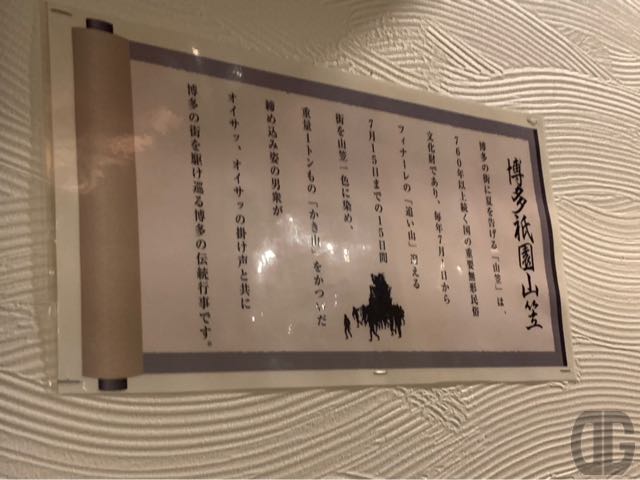 博多祇園山笠
博多の街に夏を告げる「山笠」は、
760年以上続く国の重要無形民俗
文化財であり、毎年7月1日から
フィナーレの「追い山」迎える
7月15日までの15日間
街を山笠一色に染め、
重量1トンもの「かき山」をかついだ
締め込み姿の男衆が
オイサッ、オイサッの掛け声と共に
博多の街を駆け巡る博多の伝統行事です。
DG